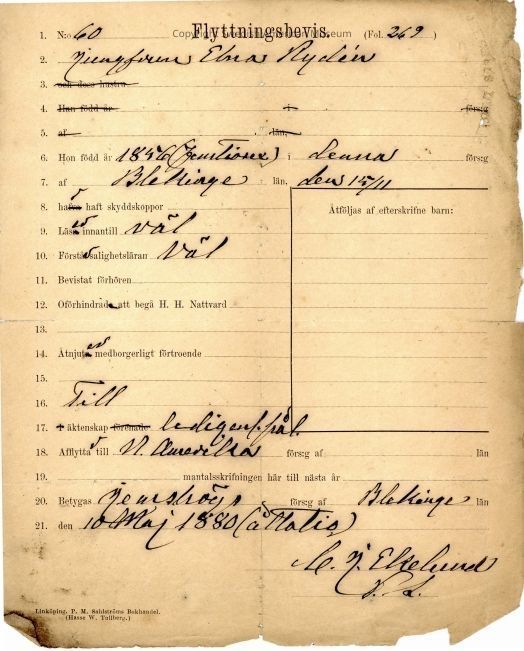 Flyttningsbevis.
1. N:o 60 (Fol. 269)
2. Jungfrun Elna Rydén
3. och dess hustru
4. Han född år i förs:g
5. af län,
6. Hon född år 1856 (femtiosex) i denna förs:g
7. af Blekinge län. den 15/11
8. hafva haft skyddskoppor
Åtföljas af efterskrifne barn:
9. Läsa innantill väl
10. Förstå salighetsläran Väl
11. Bevistat förhören
12. Oförhindrade att begå H. H. Nattvard
13.
14. Åtnjuta medborgerligt förtroende
15.
16. Till
17. i äktenskap förenade ledig
18. Afflytta till N. Amerika förs:g af län
19. mantalsskrifningen här till nästa år
20. Betygas Jemshögs förs:g af Blekinge län
21. den 10 Maj 1880
C. J. Ekelund
Linköping, P. M. Sahlströms Bokhandel.
(Hasse W. Tullberg.)